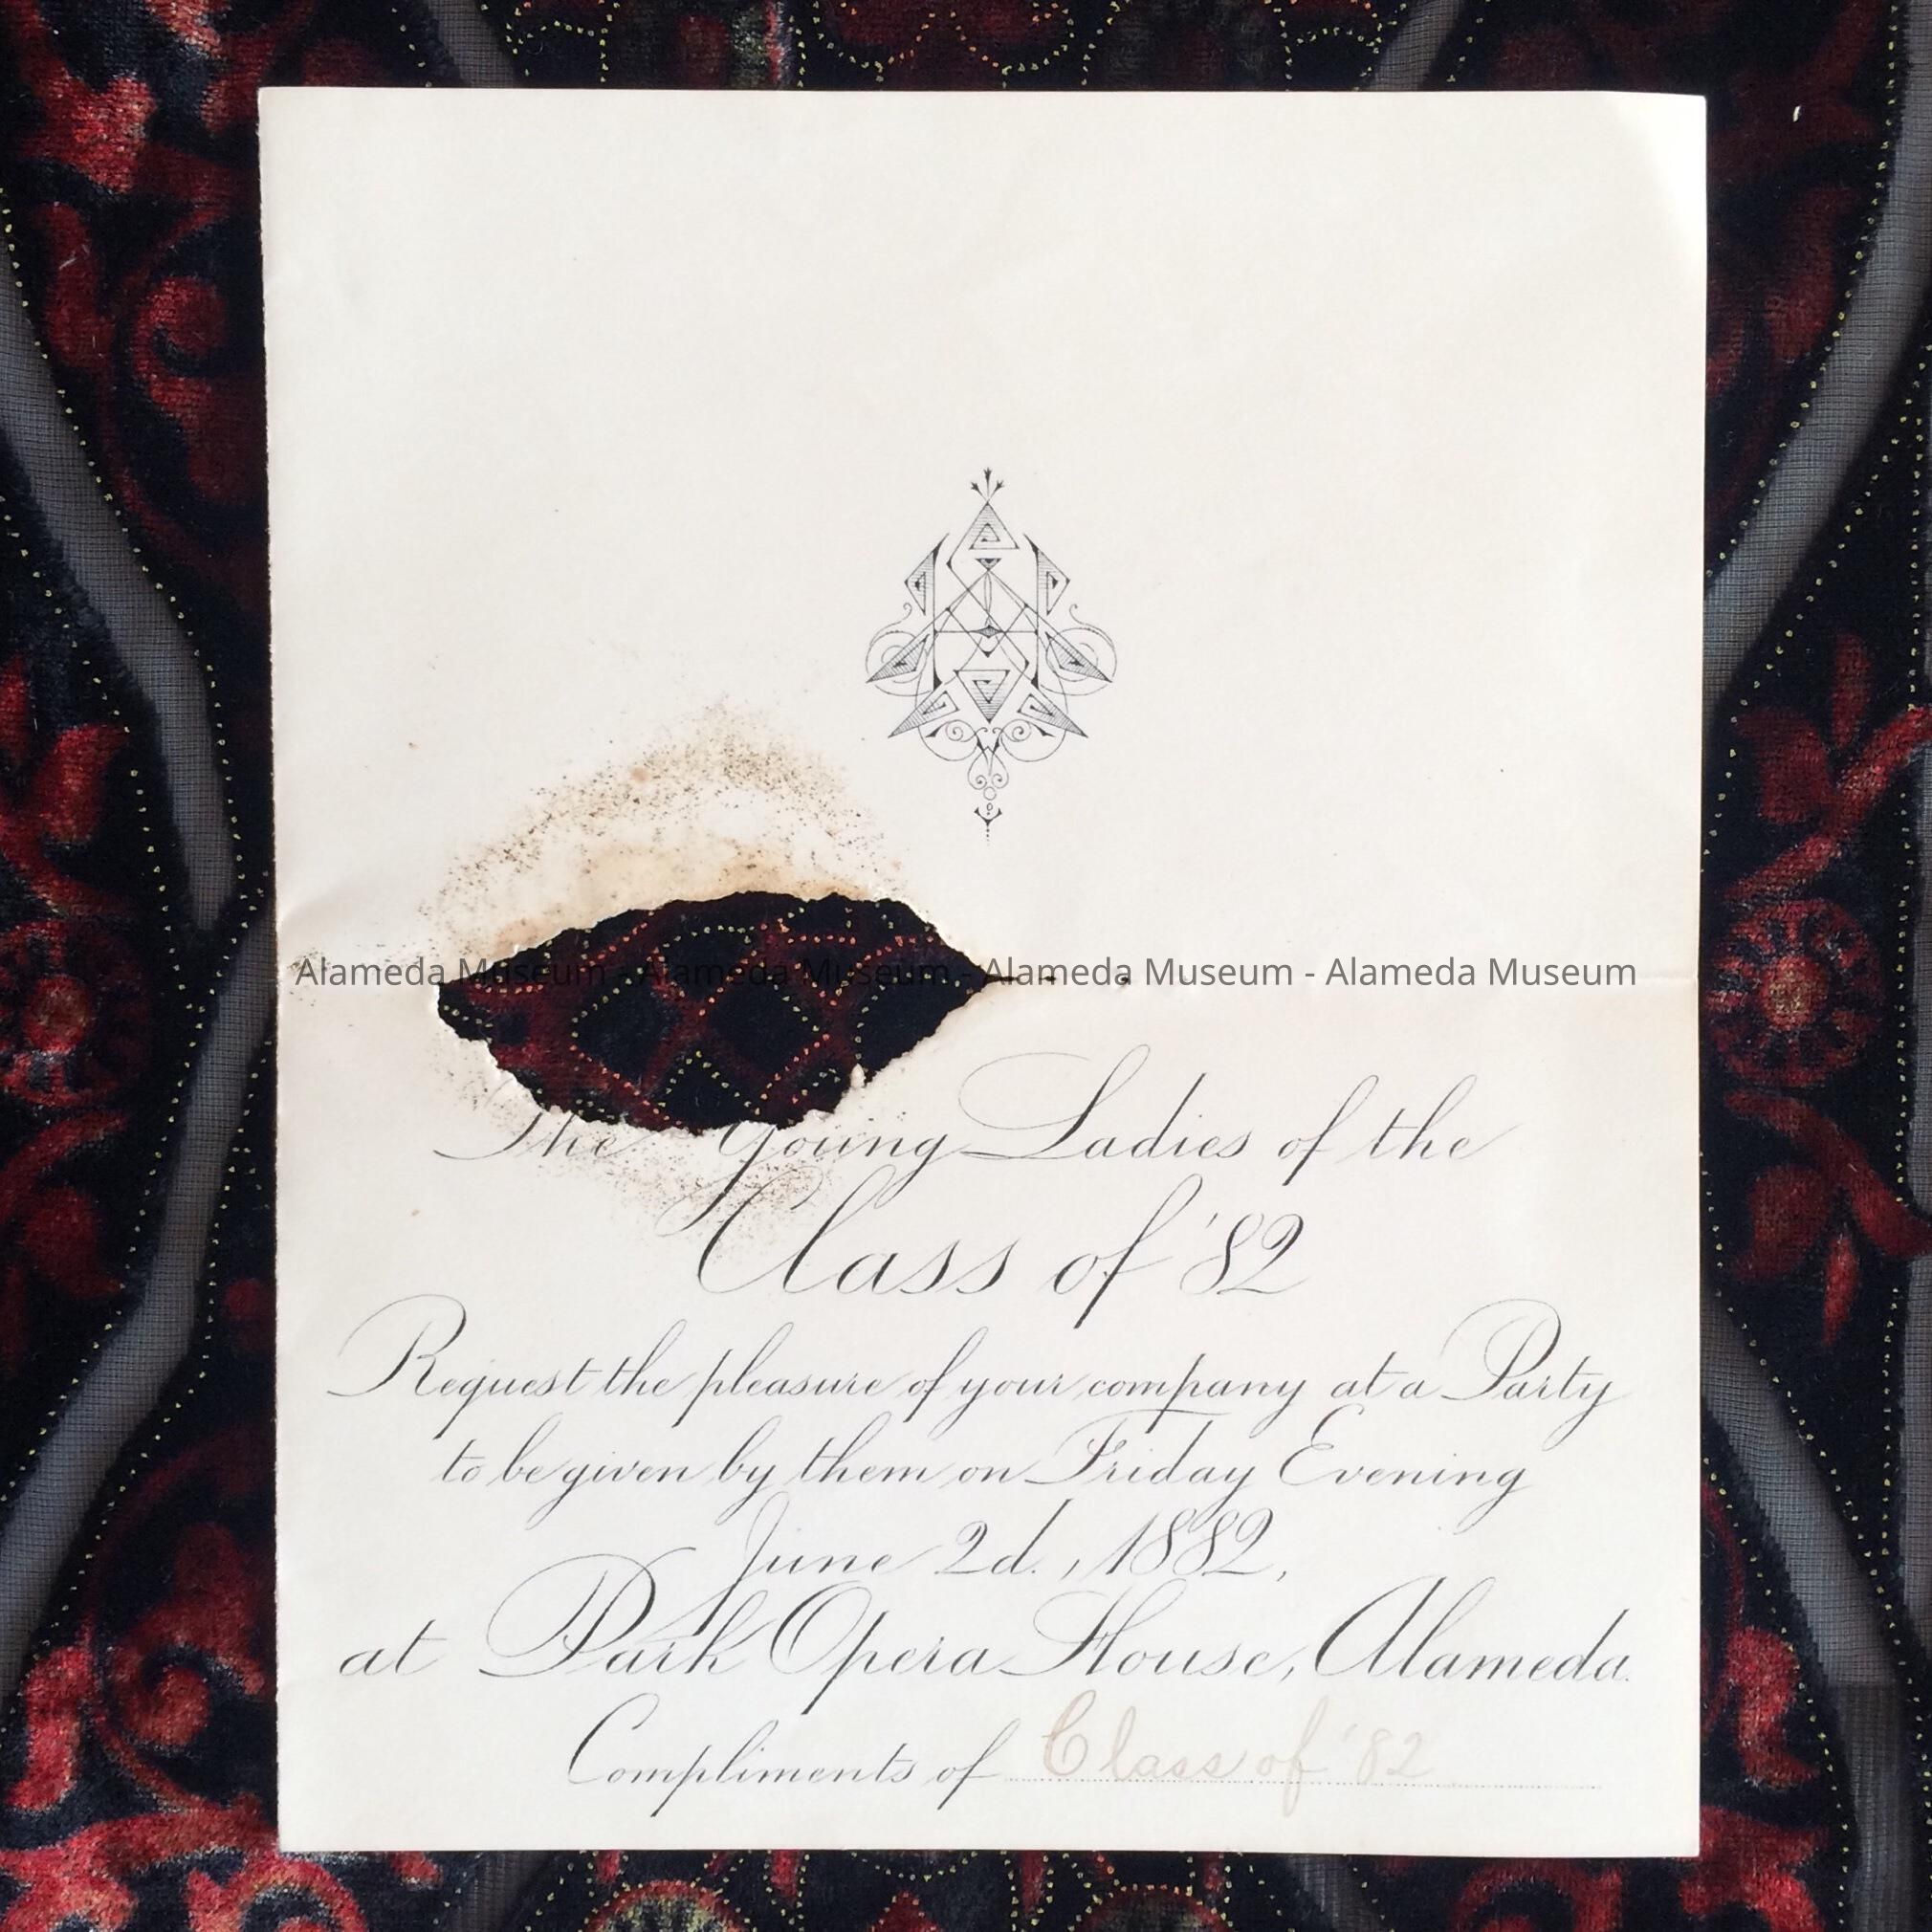 Alameda Museum - Alameda Museum - Alameda Museum - Alameda Museum
The Young Ladies of the
Class of '82
Request the pleasure of your company at a Party
to be given by them on Friday Evening
June 2d., 1882,
at Park Opera House, Alameda.
Compliments of Class of '82